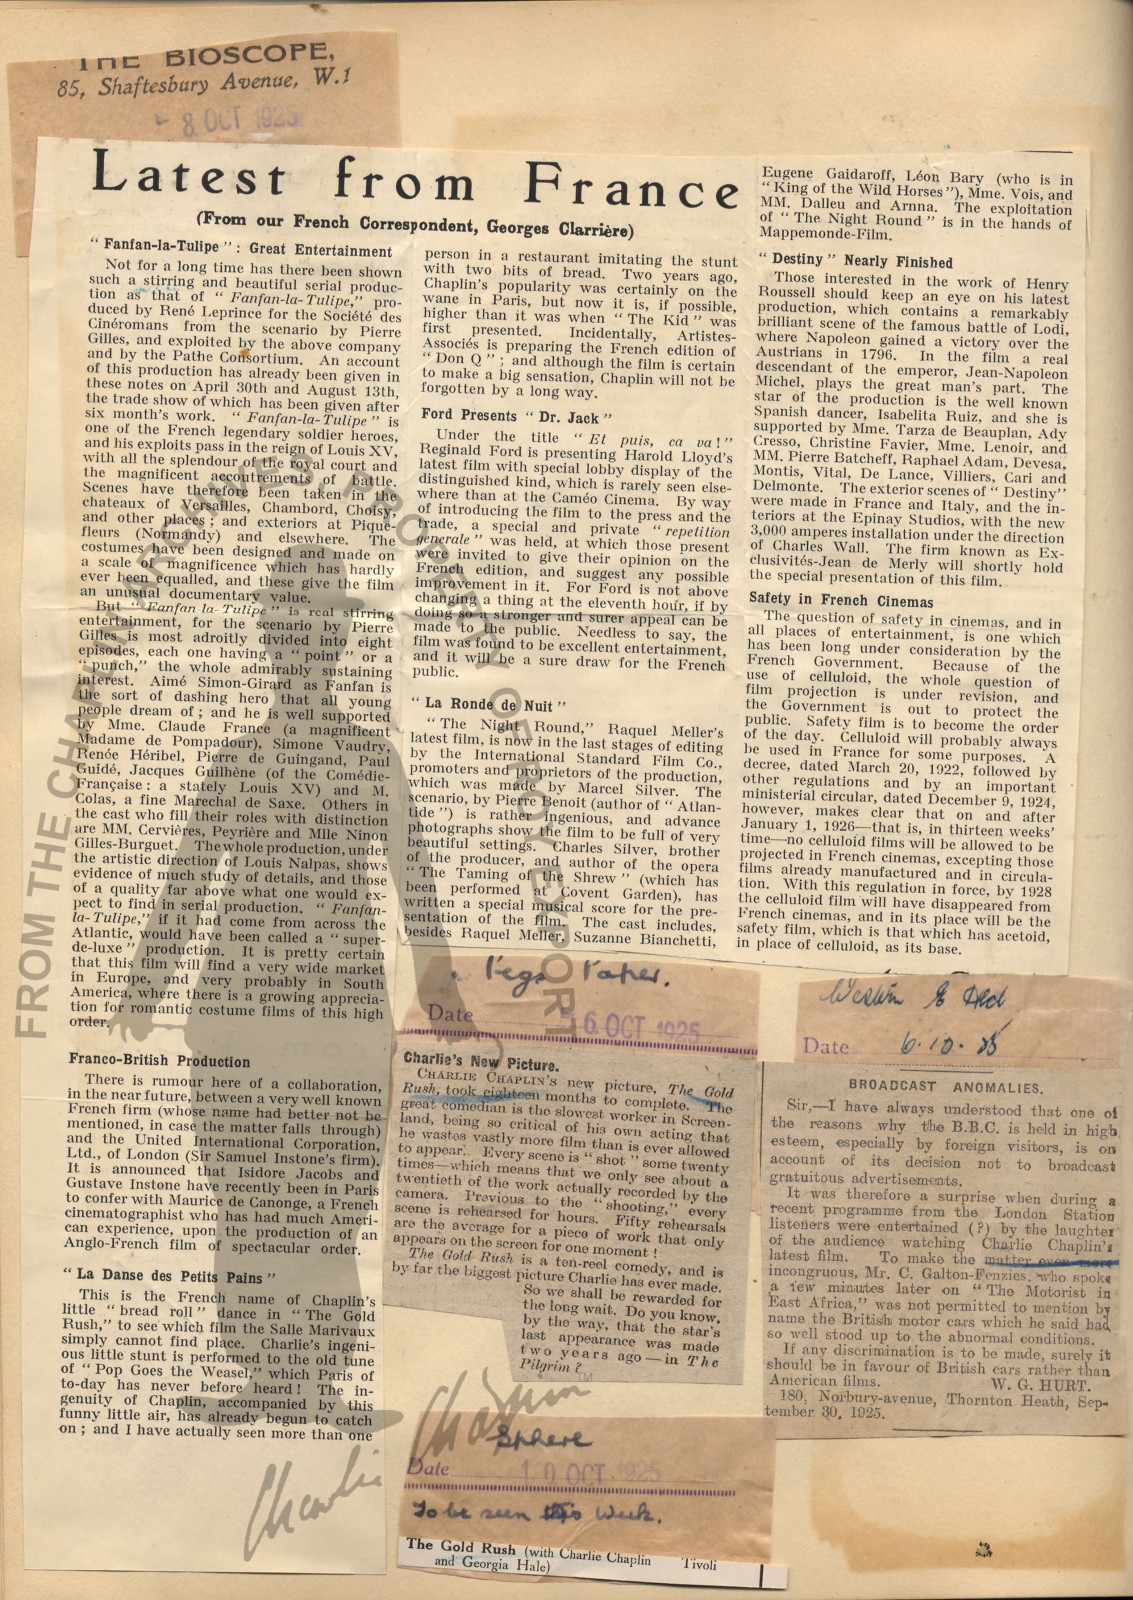 THE BIOSCOPE,
85, Shaftesbury Avenue, W.1
8 OCT 1925
Latest from France
(From our French Correspondent, Georges Clarrière)
"Fanfan-la-Tulipe": Great Entertainment
Not for a long time has there been shown
such a stirring and beautiful serial produc-
tion as that of "Fanfan-la-Tulipe," pro-
duced by René Leprince for the Société des
Cinéromans from the scenario by Pierre
Gilles, and exploited by the above company
and by the Pathe Consortium. An account
of this production has already been given in
these notes on April 30th and August 13th,
the trade show of which has been given after
six month's work. "Fanfan-la-Tulipe" is
one of the French legendary soldier heroes,
and his exploits pass in the reign of Louis XV,
with all the splendour of the royal court and
the magnificent accoutrements of battle.
Scenes have therefore been taken in the
chateaux of Versailles, Chambord, Choisy,
and other places; and exteriors at Pique-
fleurs (Normandy) and elsewhere. The
costumes have been designed and made on
a scale of magnificence which has hardly
ever been equalled, and these give the film
an unusual documentary value.
But "Fanfan la-Tulipe" is real stirring
entertainment, for the scenario by Pierre
Gilles is most adroitly divided into eight
episodes, each one having a "point" or a
"punch," the whole admirably sustaining
interest. Aimé Simon-Girard as Fanfan is
the sort of dashing hero that all young
people dream of; and he is well supported
by Mme. Claude France (a magnificent
Madame de Pompadour), Simone Vaudry,
Renée Héribel, Pierre de Guingand, Paul
Guidé, Jacques Guilhène (of the Comédie-
Française: a stately Louis XV) and M.
Colas, a fine Marechal de Saxe. Others in
the cast who fill their roles with distinction
are MM. Cervières, Peyrière and Mlle Ninon
Gilles-Burguet. The whole production, under
the artistic direction of Louis Nalpas, shows
evidence of much study of details, and those
of a quality far above what one would ex-
pect to find in serial production. "Fanfan-
la-Tulipe," if it had come from across the
Atlantic, would have been called a "super-
de-luxe" production. It is pretty certain
that this film will find a very wide market
in Europe, and very probably in South
America, where there is a growing apprecia-
tion for romantic costume films of this high
order.
Franco-British Production
There is rumour here of a collaboration,
in the near future, between a very well known
French firm (whose name had better not be
mentioned, in case the matter falls through)
and the United International Corporation,
Ltd., of London (Sir Samuel Instone's firm).
It is announced that Isidore Jacobs and
Gustave Instone have recently been in Paris
to confer with Maurice de Canonge, a French
cinematographist who has had much Ameri-
can experience, upon the production of an
Anglo-French film of spectacular order.
"La Danse des Petits Pains"
This is the French name of Chaplin's
little "bread roll" dance in "The Gold
Rush," to see which film the Salle Marivaux
simply cannot find place. Charlie's ingeni-
ous little stunt is performed to the old tune
of "Pop Goes the Weasel," which Paris of
to-day has never before heard! The in-
genuity of Chaplin, accompanied by this
funny little air, has already begun to catch
on; and I have actually seen more than one
person in a restaurant imitating the stunt
with two bits of bread. Two years ago,
Chaplin's popularity was certainly on the
wane in Paris, but now it is, if possible,
higher than it was when "The Kid" was
first presented. Incidentally, Artistes-
Associés is preparing the French edition of
"Don Q"; and although the film is certain
to make a big sensation, Chaplin will not be
forgotten by a long way.
Ford Presents "Dr. Jack"
Under the title "Et puis, ca va!"
Reginald Ford is presenting Harold Lloyd's
latest film with special lobby display of the
distinguished kind, which is rarely seen else-
where than at the Caméo Cinema. By way
of introducing the film to the press and the
trade, a special and private "repetition
generale" was held, at which those present
were invited to give their opinion on the
French edition, and suggest any possible
improvement in it. For Ford is not above
changing a thing at the eleventh hour, if by
doing so a stronger and surer appeal can be
made to the public. Needless to say, the
film was found to be excellent entertainment,
and it will be a sure draw for the French
public.
"La Ronde de Nuit"
"The Night Round," Raquel Meller's
latest film, is now in the last stages of editing
by the International Standard Film Co.,
promoters and proprietors of the production,
which was made by Marcel Silver. The
scenario, by Pierre Benoit (author of "Atlan-
tide") is rather ingenious, and advance
photographs show the film to be full of very
beautiful settings. Charles Silver, brother
of the producer, and author of the opera
"The Taming of the Shrew" (which has
been performed at Covent Garden), has
written a special musical score for the pre-
sentation of the film. The cast includes,
besides Raquel Meller, Suzanne Bianchetti,
Eugene Gaidaroff, Léon Bary (who is in
"King of the Wild Horses"), Mme. Vois, and
MM. Dalleu and Arnna. The exploitation
of "The Night Round" is in the hands of
Mappemonde-Film.
"Destiny" Nearly Finished
Those interested in the work of Henry
Roussell should keep an eye on his latest
production, which contains a remarkably
brilliant scene of the famous battle of Lodi,
where Napoleon gained a victory over the
Austrians in 1796. In the film a real
descendant of the emperor, Jean-Napoleon
Michel, plays the great man's part. The
star of the production is the well known
Spanish dancer, Isabelita Ruiz, and she is
supported by Mme. Tarza de Beauplan, Ady
Cresso, Christine Favier, Mme. Lenoir, and
MM. Pierre Batcheff, Raphael Adam, Devesa,
Montis, Vital, De Lance, Villiers, Cari and
Delmonte. The exterior scenes of "Destiny"
were made in France and Italy, and the in-
teriors at the Epinay Studios, with the new
3,000 amperes installation under the direction
of Charles Wall. The firm known as Ex-
clusivités-Jean de Merly will shortly hold
the special presentation of this film.
Safety in French Cinemas
The question of safety in cinemas, and in
all places of entertainment, is one which
has been long under consideration by the
French Government. Because of the
use of celluloid, the whole question of
film projection is under revision, and
the Government is out to protect the
public. Safety film is to become the order
of the day. Celluloid will probably always
be used in France for some purposes. A
decree, dated March 20, 1922, followed by
other regulations and by an important
ministerial circular, dated December 9, 1924,
however, makes clear that on and after
January 1, 1926—that is, in thirteen weeks'
time—no celluloid films will be allowed to be
projected in French cinemas, excepting those
films already manufactured and in circula-
tion. With this regulation in force, by 1928
the celluloid film will have disappeared from
French cinemas, and in its place will be the
safety film, which is that which has acetoid,
in place of celluloid, as its base.
Pegs Paper.
Date 6 OCT 1925
Charlie's New Picture.
CHARLIE CHAPLIN'S new picture, The Gold
Rush, took eighteen months to complete. The
great comedian is the slowest worker in Screen-
land, being so critical of his own acting that
he wastes vastly more film than is ever allowed
to appear. Every scene is "shot" some twenty
times—which means that we only see about a
twentieth of the work actually recorded by the
camera. Previous to the "shooting," every
scene is rehearsed for hours. Fifty rehearsals
are the average for a piece of work that only
appears on the screen for one moment!
The Gold Rush is a ten-reel comedy, and is
by far the biggest picture Charlie has ever made.
So we shall be rewarded for
the long wait. Do you know,
by the way, that the star's
last appearance was made
two years ago—in The
Pilgrim?
Date 6.10.25
BROADCAST ANOMALIES.
Sir,—I have always understood that one of
the reasons why the B.B.C. is held in high
esteem, especially by foreign visitors, is on
account of its decision not to broadcast
gratuitous advertisements.
It was therefore a surprise when during a
recent programme from the London Station
listeners were entertained (?) by the laughter
of the audience watching Charlie Chaplin's
latest film. To make the matter even more
incongruous, Mr. C. Galton-Fenzies, who spoke
a few minutes later on "The Motorist in
East Africa," was not permitted to mention by
name the British motor cars which he said had
so well stood up to the abnormal conditions.
If any discrimination is to be made, surely it
should be in favour of British cars rather than
American films. W. G. HURT.
180, Norbury-avenue, Thornton Heath, Sep-
tember 30, 1925.
Sphere
Date 10 OCT 1925
To be seen this Week.
The Gold Rush (with Charlie Chaplin Tivoli
and Georgia Hale)
FROM THE CHAPLIN ARCHIVES, PROPERTY OF ROY EXPORT
Charlie Chaplin
TM